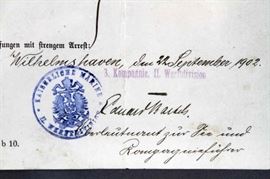 fungen mit strengem Arrest:
Wilhelmshaven, den 22. September 1902.
3. Kompagnie. II. Werftdivision
KAISERLICHE MARINE
II. WERFTDIVISION
Eduard
Oberleutnant zur See und
Kompagnieführer
b 10.